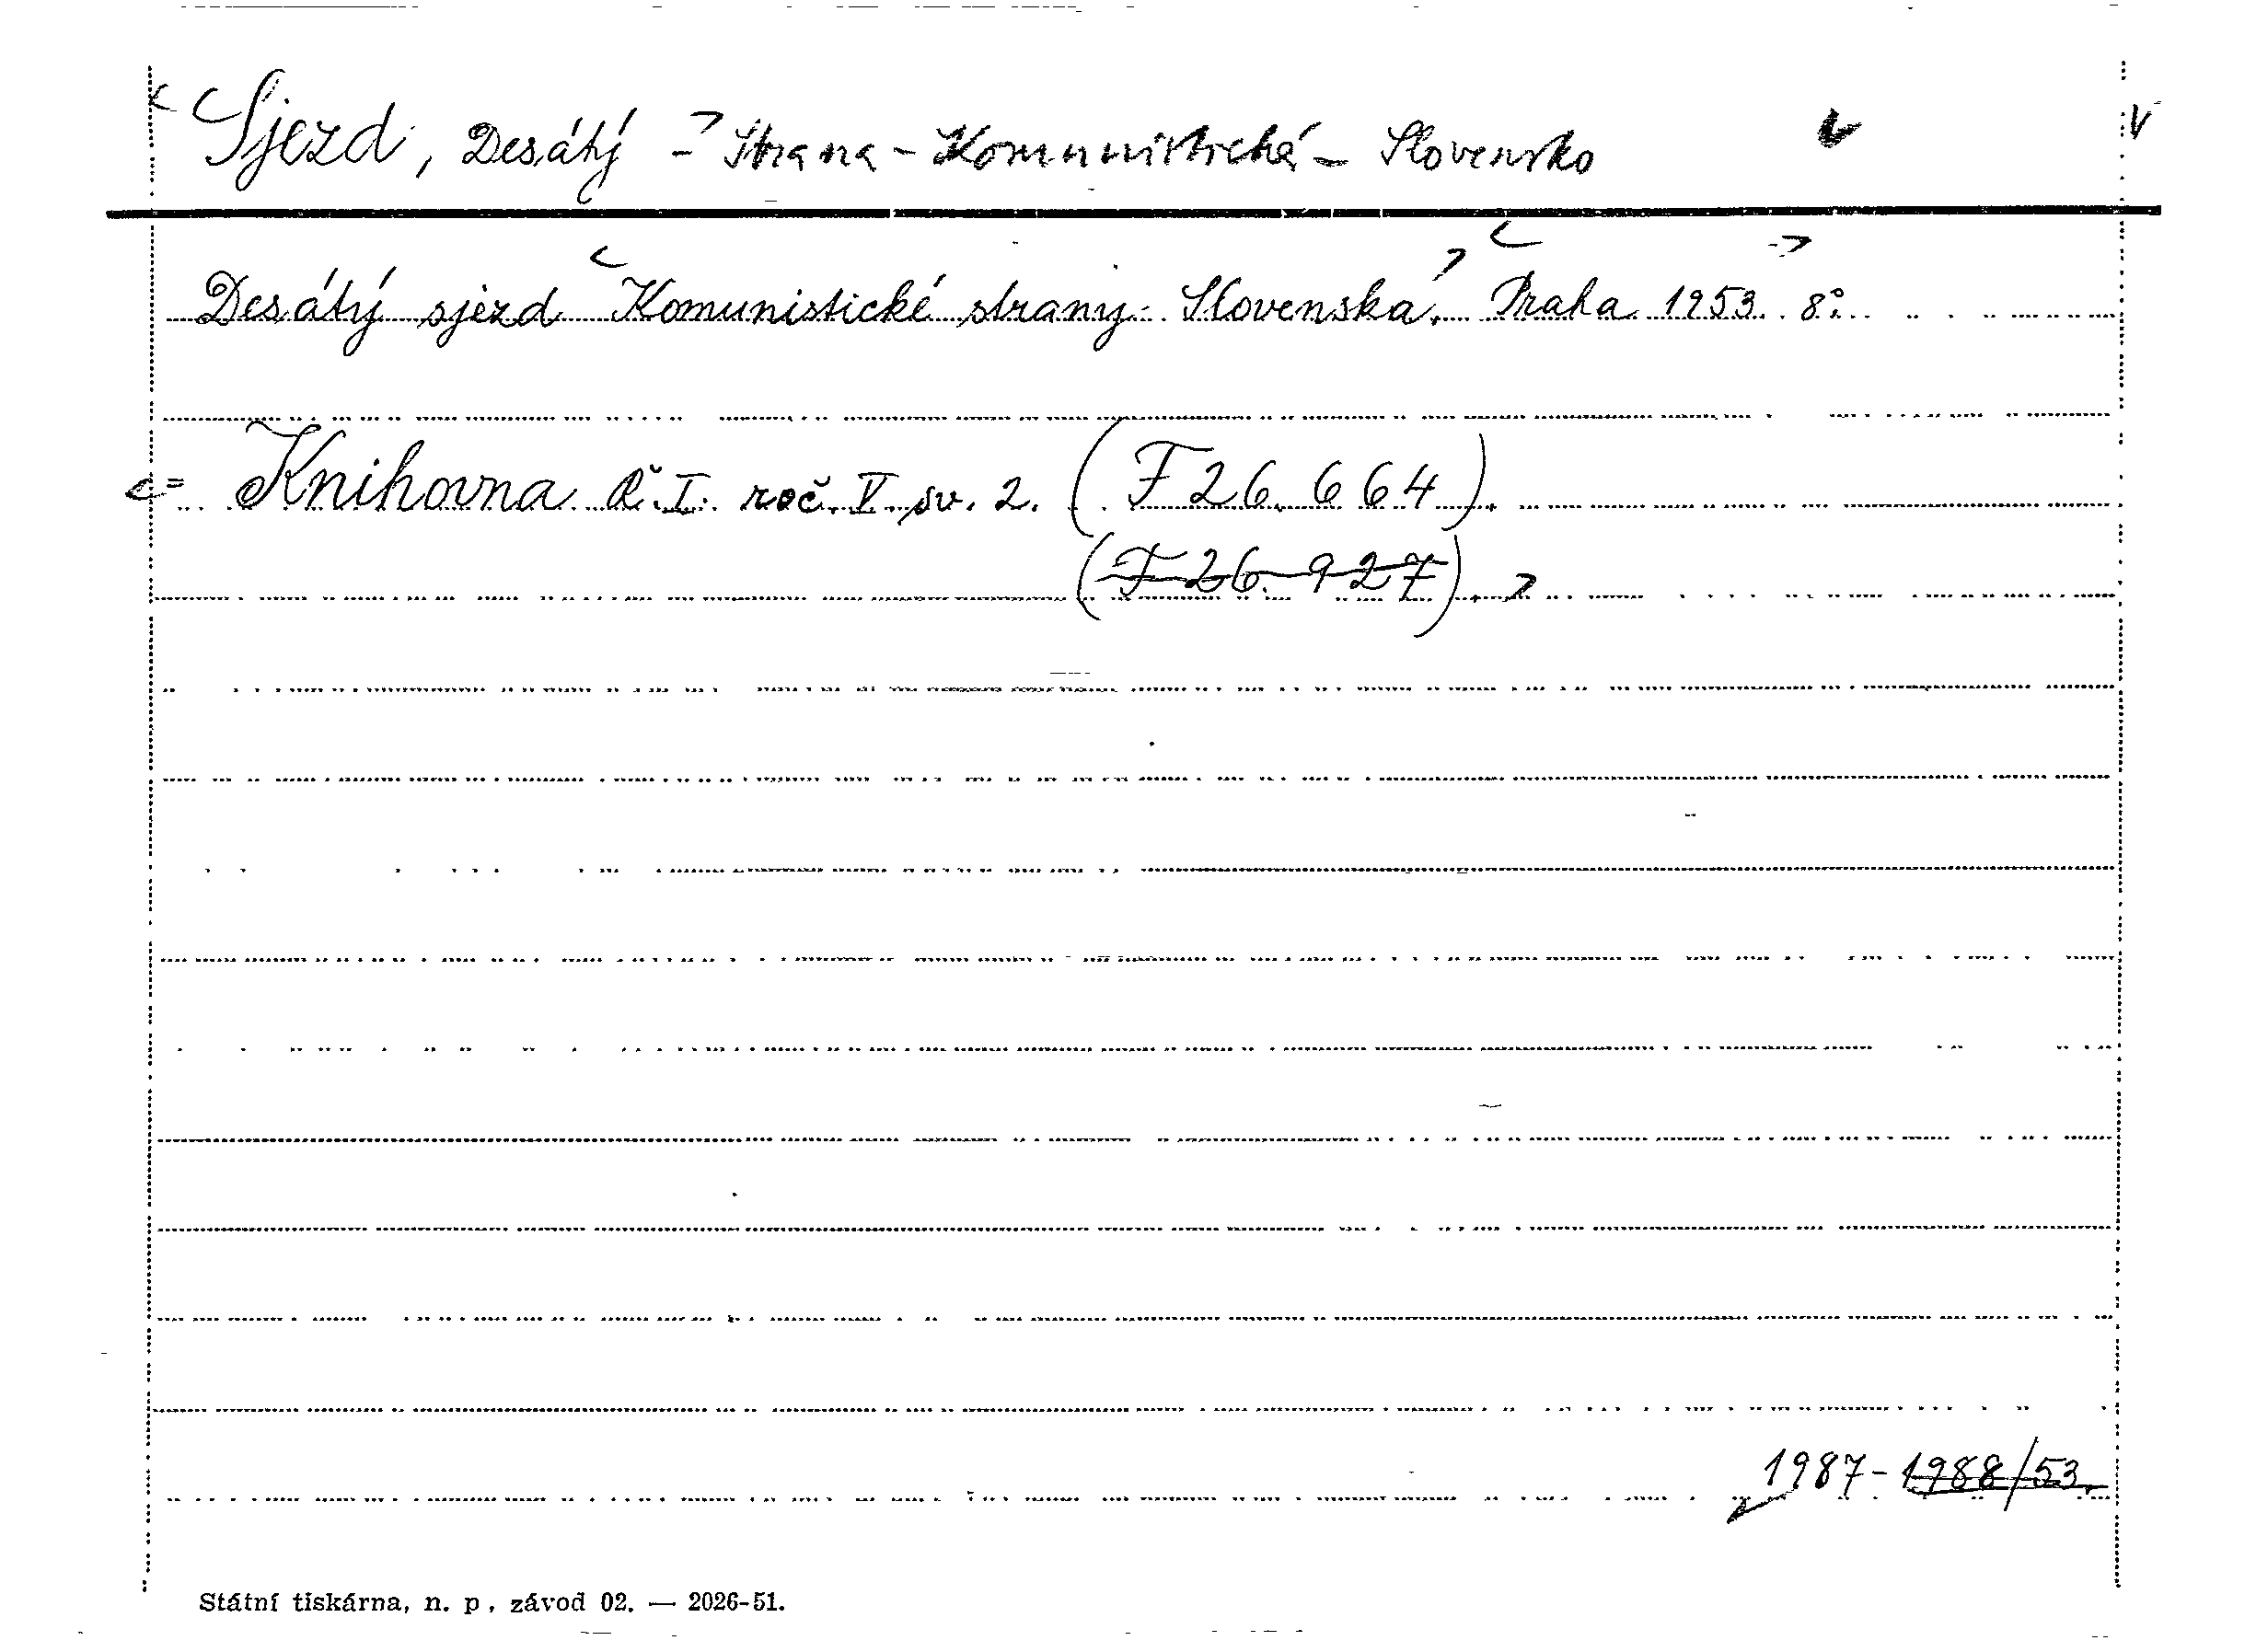 Sjezd, Desátý - Strana - Komunistická - Slovensko
Desátý sjezd Komunistické strany Slovenska. Praha 1953. 8°.
= Knihovna Ř. I. roč. V. sv. 2. (F 26.664).
(F 26.927).
1987-1988/53.
Státní tiskárna, n. p., závod 02. — 2026-51.